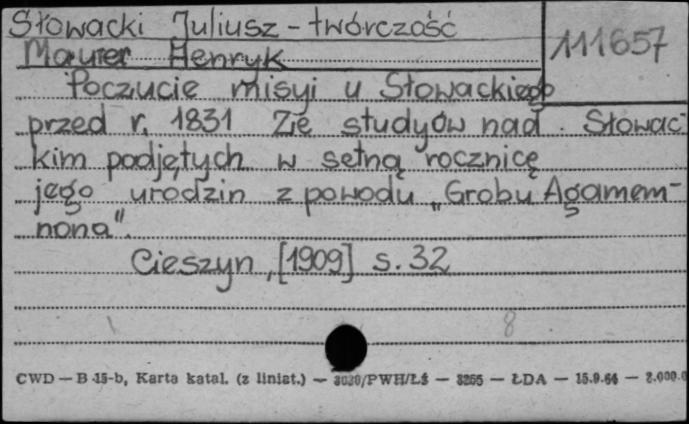 Słowacki Juliusz - twórczość
111657
Maurer Henryk
Poczucie misyi u Słowackiego
przed r. 1831 Ze studyów nad Słowac-
kim podjętych w setną rocznicę
jego urodzin z powodu „Grobu Agamem-
nona".
Cieszyn, [1909] s. 32
8
CWD — B 15-b, Karta katal. (z liniat.) — 3030/PWH/Ł5 — 3265 — ŁDA — 15.9.64 — 2.000.0